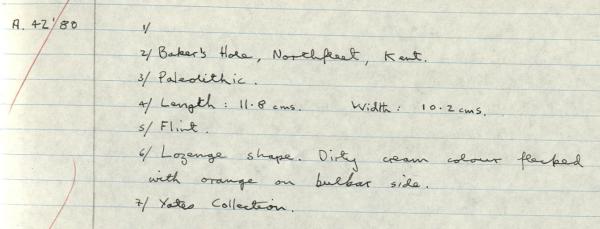 A. 42'80 1/
2/ Baker's Hole, Northfleet, Kent.
3/ Paleolithic.
4/ Length: 11.8 cms. Width: 10.2 cms.
5/ Flint.
6/ Lozenge shape. Dirty cream colour flecked
with orange on bulbar side.
7/ Yates Collection.